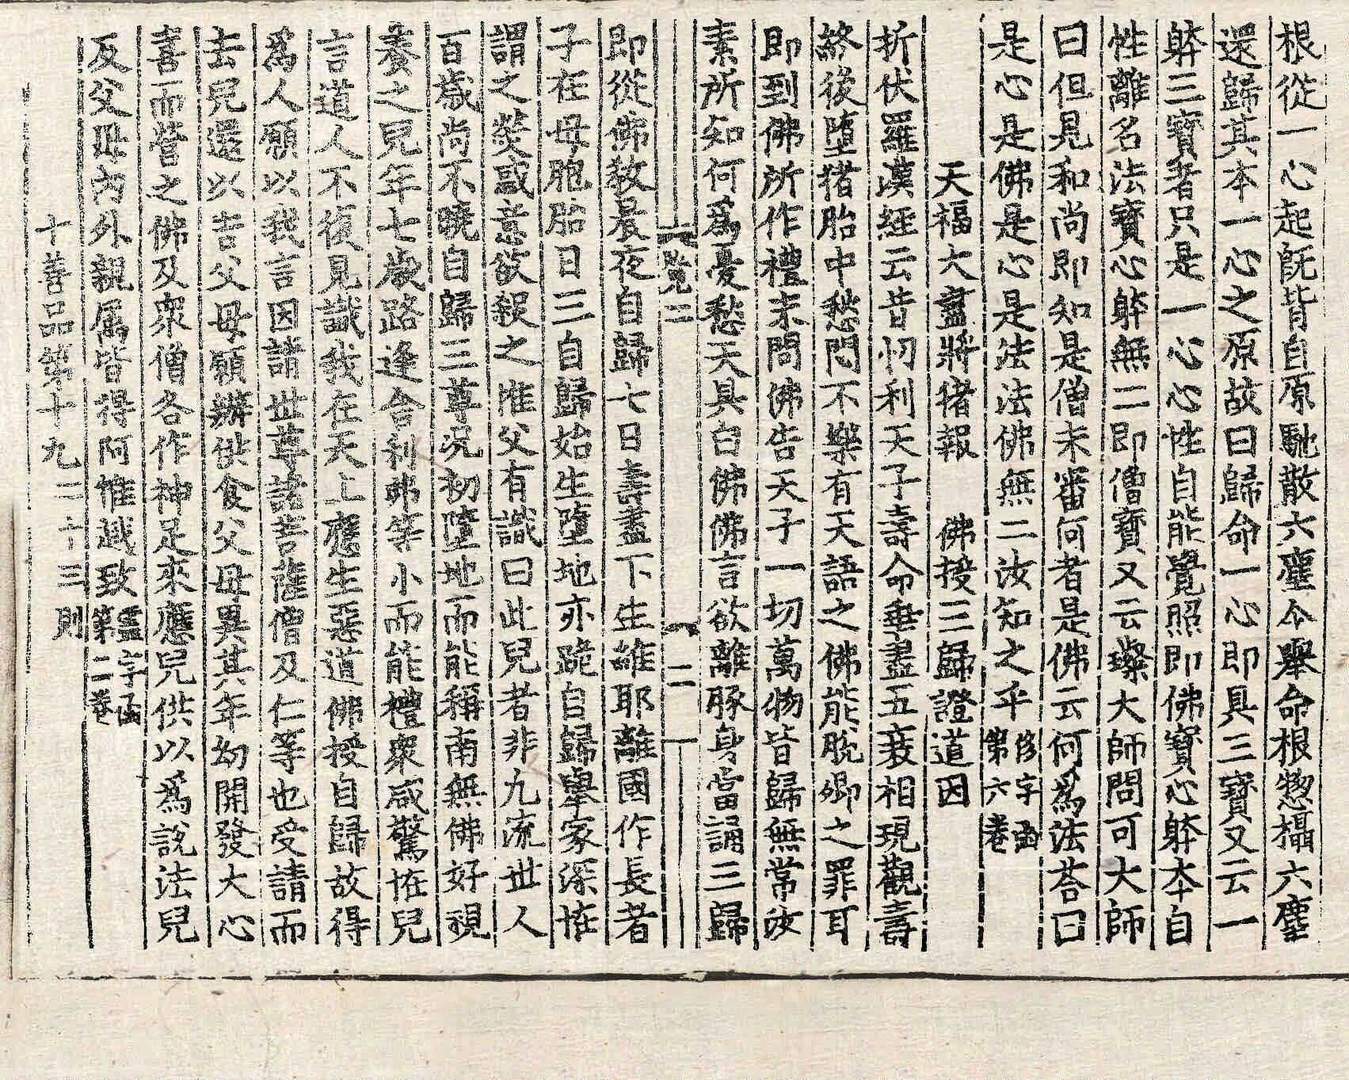 根從一心起旣背自原馳散六塵今舉命根惣攝六塵
還歸其本一心之原故曰歸命一心即具三寶又云一
躰三寶者只是一心心性自能覺照即佛寶心躰本自
性離名法寶心躰無二即僧寶又云璨大師問可大師
曰但見和尚即知是僧未審何者是佛云何爲法荅曰
是心是佛是心是法法佛無二汝知之乎
字函
第六卷
天福大盡將猪報　佛授三歸證道因
折伏羅漢經云昔忉利天子壽命垂盡五衰相現觀壽
終後墮猪胎中愁悶不樂有天語之佛能脫卿之罪耳
即到佛所作禮未問佛告天子一切萬物皆歸無常汝
素所知何爲憂愁天具白佛佛言欲離豚身當誦三歸
覽二
二
即從佛敎晨夜自歸七日壽盡下生維耶離國作長者
子在母胞胎日三自歸始生墮地亦跪自歸舉家深恠
謂之熒惑意欲殺之惟父有識曰此兒者非九流世人
百歲尚不曉自歸三尊況初墮地而能稱南無佛好視
養之兒年七歲路逢舍利弗等小而能禮衆咸驚恠兒
言道人不復見識我在天上應生惡道佛授自歸故得
爲人願以我言因請世尊諸菩薩僧及仁等也受請而
去兒還以告父母願辦供食父母異其年幼開發大心
喜而營之佛及衆僧各作神足來應兒供以爲說法兒
及父母內外親属皆得阿惟越致
字函
第二卷
十善品第十九二十三則